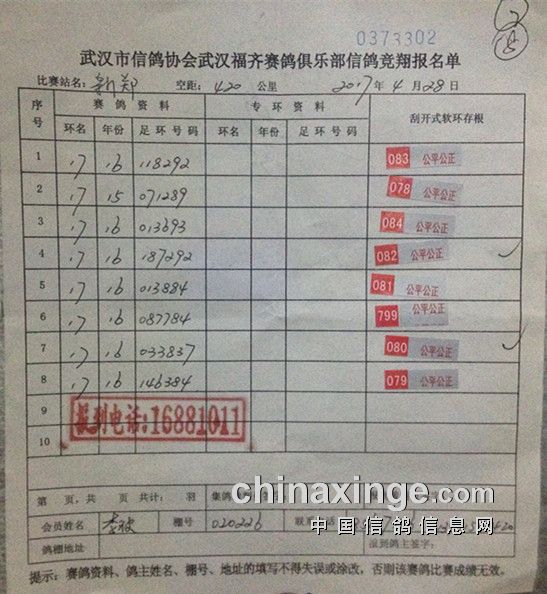 0373302
武汉市信鸽协会武汉福齐赛鸽俱乐部信鸽竞翔报名单
比赛站名：新郑 空距：420 公里 2017 年 4 月 28 日
序号 赛鸽资料 专环资料 刮开式软环存根
环名 年份 足环号码 环名 年份 足环号码
1 17 16 118292 083 公平公正
2 17 15 071289 078 公平公正
3 17 16 013693 084 公平公正
4 17 16 187292 082 公平公正
5 17 16 013884 081 公平公正
6 17 16 087784 799 公平公正
7 17 16 033837 080 公平公正
8 17 16 146384 079 公平公正
9
报到电话:16881011
10
第 页，共 页 共计： 羽 集鸽
chinaxinge.com
会员姓名 李 棚号 020226 联系
中国信鸽信息网
鸽棚地址 鸽主签字：
提示：赛鸽资料、鸽主姓名、棚号、地址的填写不得失误或涂改，否则该赛鸽比赛成绩无效。